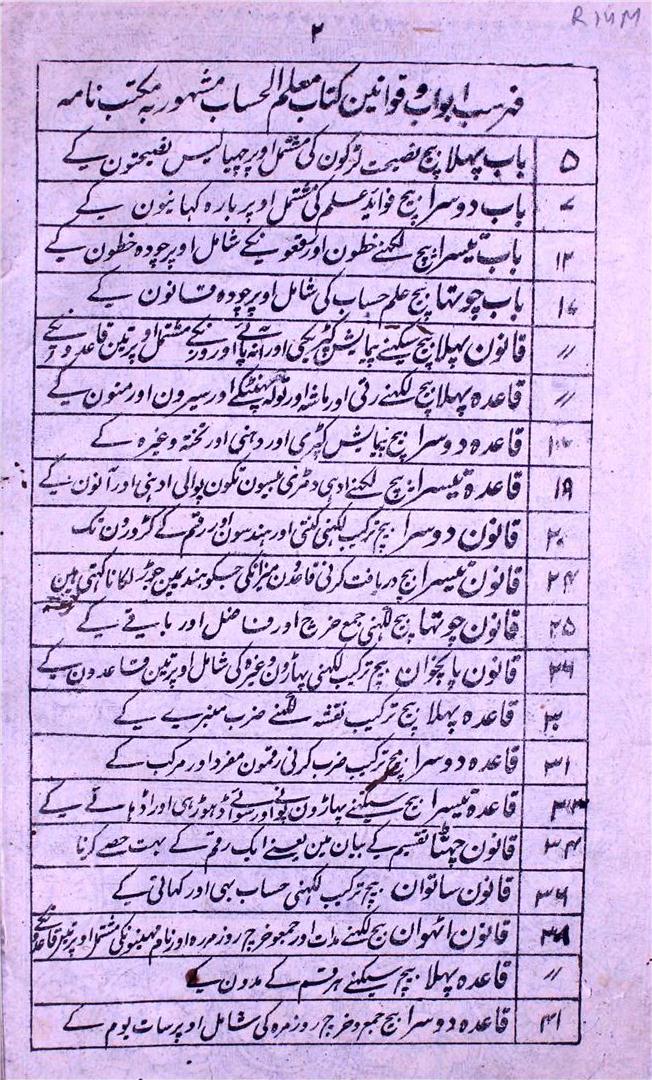 R14M
۲
فہرست ابواب و قوانین کتاب معلم الحساب مشہور بہ مکتب نامہ
باب پہلا بیچ نصیحت لڑکون کی مشتمل اوپر چھیالیس نصیحتون کے ۵
باب دوسرا بیچ فوائد علم کی مشتمل اوپر بارہ کہانیون کے ۷
باب تیسرا بیچ لکھنے خطون اور رقعونکے شامل اوپر چودہ خطون کے ۱۲
باب چوتھا بیچ علم حساب کی شامل اوپر چودہ قانون کے ۱۷
قانون پہلا بیچ سیکھنے پیمایش اور مشتمل اوپر تین قاعدونکے ״
قاعدہ پہلا بیچ لکھنے رتی اور ماشہ اور تولہ اور سیرون اور منون کے ״
قاعدہ دوسرا بیچ پیمایش اور دہنی اور تختہ وغیرہ کے
قاعدہ تیسرا بیچ لکھنے ادہی دمڑی اور آنون کے ۱۸
قانون دوسرا بیچ ترکیب لکھنی گنتی اور ہندسون اور رقم کے کڑورون تک ۲۰
قانون تیسرا بیچ دریافت کرنی قاعدون میزانکی جسکو ہندیمین جوڑ لگانا کہتی ہین ۲۴
قانون چوتھا بیچ لکھنی جمع خرچ اور فاضل اور باقے کے ۲۵
قانون پانچوان بیچ ترکیب لکھنی پہاڑون وغیرہ کی شامل اوپر تین قاعدون کے ۲۶
قاعدہ پہلا بیچ ترکیب نقشہ لکھنے ضرب کے ۳۰
قاعدہ دوسرا بیچ ترکیب ضرب کرنی رقمون مفرد اور مرکب کے ۳۱
قاعدہ تیسرا بیچ سیکھنے پہاڑون پونے اور سوائے ڈہوڑہی اور اڈہائے کے ۳۳
قانون چھٹا تقسیم کے بیان مین یعنے ایک رقم کے بہت حصے کرنا ۳۴
قانون ساتوان بیچ ترکیب لکھنی حساب بہی اور کہاتی کے ۳۶
قانون اٹہوان بیچ لکھنے مدات اور جمع و خرچ روزمرہ اور نام مہینونکی مشتمل اوپر تین قاعدونکے ۳۸
قاعدہ پہلا بیچ سیکھنے ہر قسم کے مدون کے ״
قاعدہ دوسرا بیچ جمع و خرچ روزمرہ کی شامل اوپر سات یوم کے ۴۱